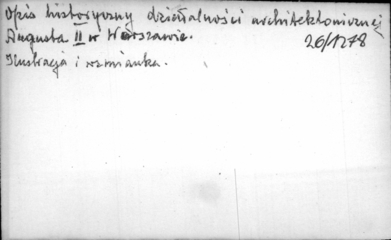 Opis historyczny działalności architektonicznej
Augusta II w Warszawie. 26/1278
Ilustracja i wzmianka.